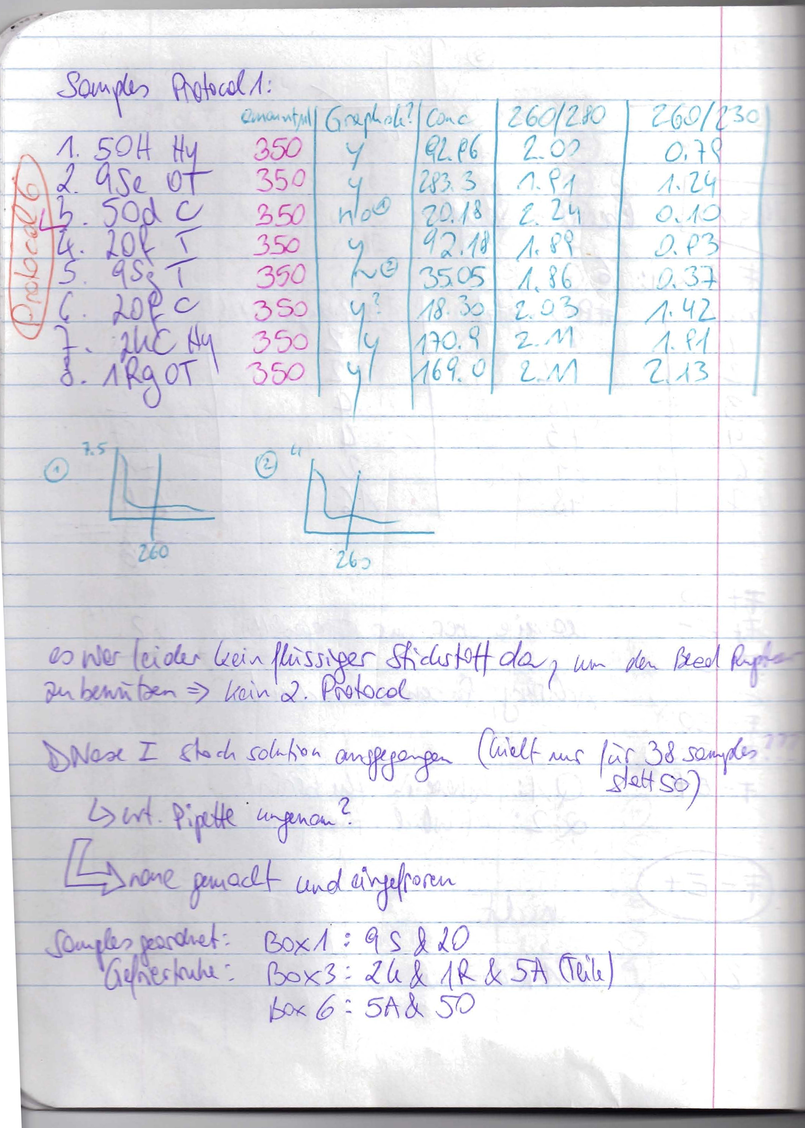 Samples Protocol 1:
amount/µl Graph ok? Conc 260/280 260/230
1. 50H Hy 350 y 92.86 2.00 0.78
2. 9Se OT 350 y 283.3 1.81 1.24
3. 50d C 350 n/o ① 20.18 2.24 0.10
4. 20f T 350 y 92.18 1.89 0.83
5. 9Sg T 350 n ② 35.05 1.86 0.37
6. 20f C 350 y? 18.30 2.03 1.42
7. 2kC Hy 350 y 170.9 2.11 1.81
8. 1Rg OT 350 y 169.0 2.11 2.13
Protocol 6
① 7.5 ② 4
260 260
es war leider kein flüssiger Stickstoff da, um den Bead Ruptor
zu benutzen => kein 2. Protocol
DNase I stock solution ausgegangen (hielt nur für 38 samples
statt 50)
↳ evt. Pipette ungenau?
neue gemacht und eingefroren
Samples geordnet: Box 1: 9S & 20
Gefriertruhe: Box 3: 2k & 1R & 5A (Teile)
Box 6: 5A & 50